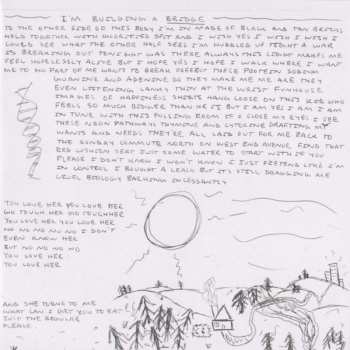 I'M BUILDING A BRIDGE
TO THE OTHER SIDE OF THIS BODY I'M IN MADE OF BLACK AND TAN BRICKS
HELD TOGETHER WITH UNDIGESTED DUST AND I WISH YES I WISH I WISH I
COULD SEE WHAT THE OTHER HALF SEES I'M HUDDLED UP TIGHT A WAR
IS BREAKING OUT TONIGHT WAS THERE ALWAYS THIS LIGHT MAKES ME
FEEL HOPELESSLY ALIVE BUT I HOPE YES I HOPE I WALK WHERE I WANT
ME TO NO PART OF ME WANT TO BREAK DO THEY THESE PROTEIN
GUANINE AND ADENINE DO THEY MAKE ME ME ARE THEY
EVEN LISTENING LANKY THIN AT THE WAIST FUNHOUSE
IMAGES OF HAPPINESS SHIRTS HANG LOOSE ON THIS KID WHO
FEELS SO MUCH BIGGER THAN HE IS BUT I AM YES I AM I AM
IN TUNE WITH THIS PULLING ROOM IF I CLOSE MY EYES I SEE
THESE NEON PATHWAYS THYMINE AND CYTOSINE DRAFTING MY
WANTS AND NEEDS THEY'RE ALL LAID OUT FOR ME BACK TO
THE SUNDAY COMMUTE NORTH ON WEST END AVENUE FIND THAT
RED CUSHION SEAT JUST SOME WATER TO START WITH IF YOU
PLEASE I DON'T KNOW I WON'T KNOW I JUST PRETEND LIKE I'M
IN CONTROL I BOUGHT A LEASH BUT IT'S STILL DRAGGING ME
CRUEL BIOLOGY BARKING INCESSANTLY
YOU LOVE HER YOU LOVE HER
GO TOUGH HER GO TOUCH HER
YOU LOVE HER YOU LOVE HER
NO NO NO NO NO I DON'T
EVEN KNOW HER
BUT NO NO NO NO
YOU LOVE HER
YOU LOVE HER
AND SHE TURNS TO ME
WHAT CAN I GET YOU TO EAT
JUST THE REGULAR
PLEASE